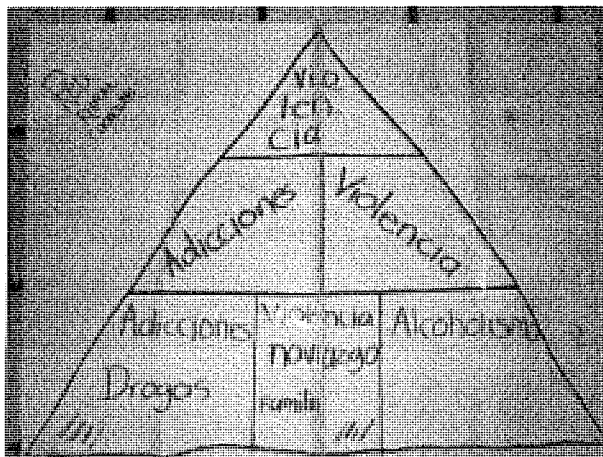 Vio
len
cia
Adicciones
Violencia
Adicciones
Drogas
Violencia
noviazgo
Familia
Alcoholismo